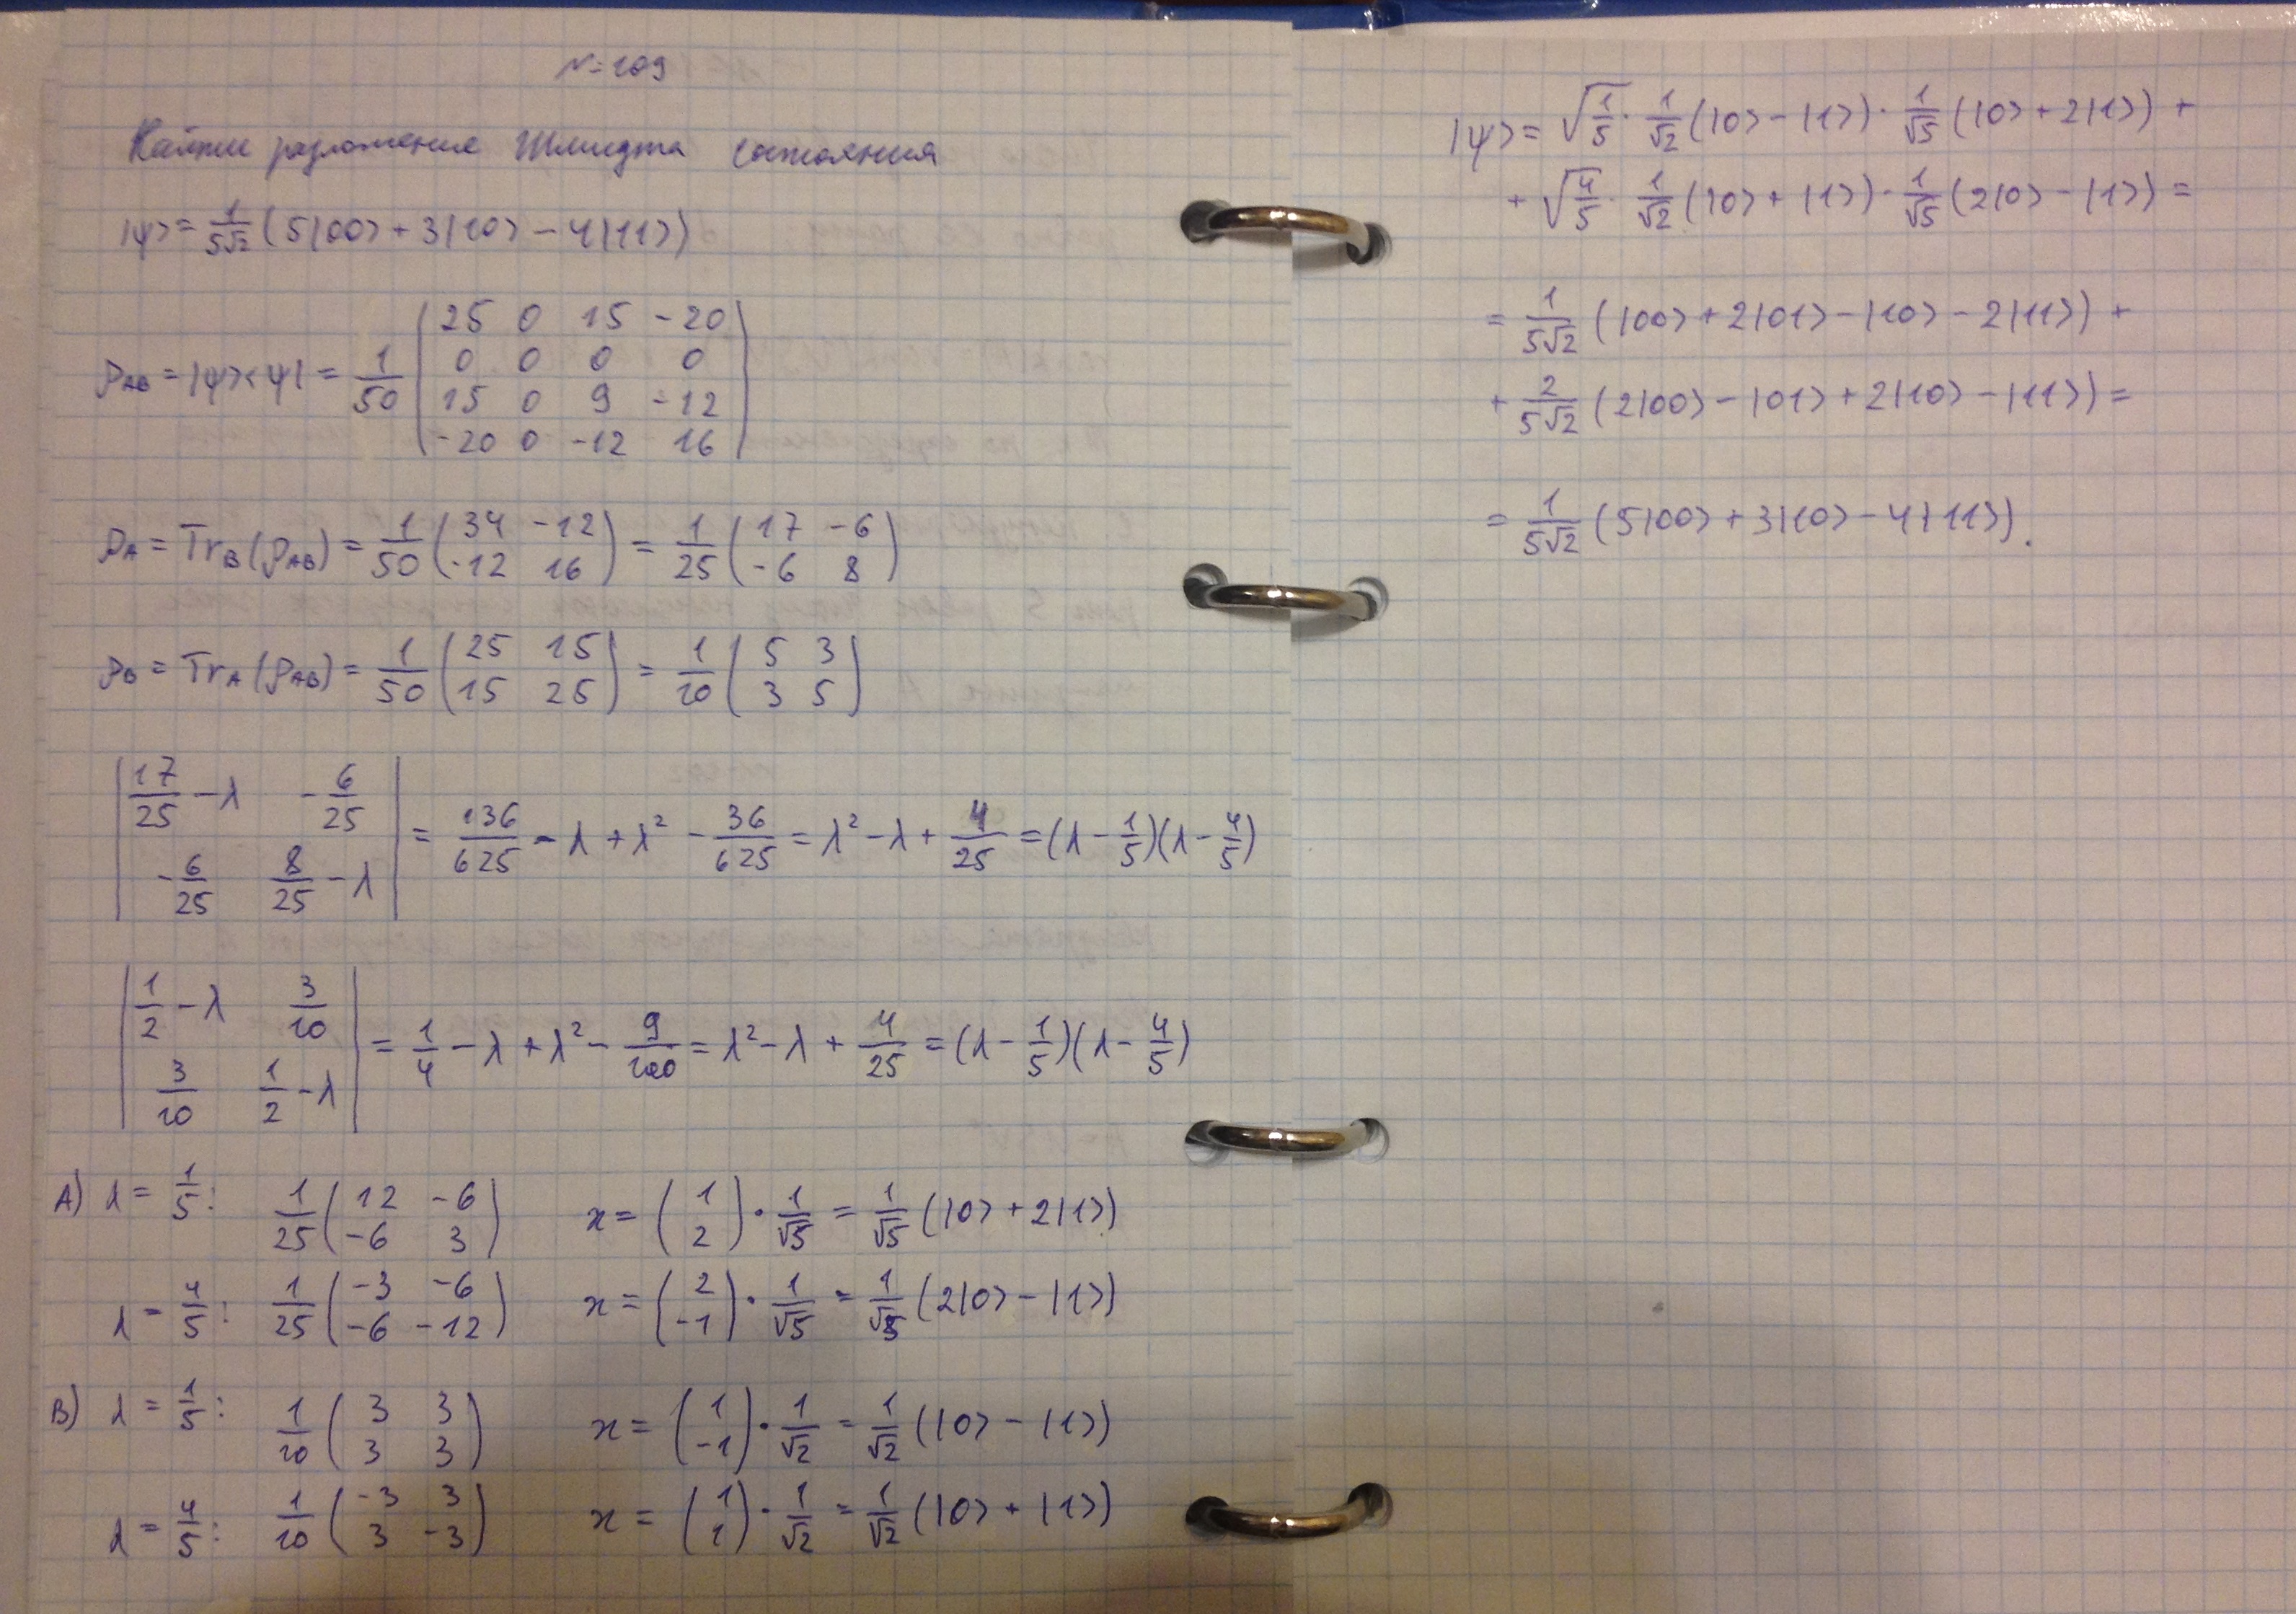 N=109
Найти разложение Шмидта состояния
|ψ> = 1/5√2 (5|00> + 3|10> − 4|11>)
ρAB = |ψ><ψ| = 1/50 ( 25 0 15 −20
0 0 0 0
15 0 9 −12
−20 0 −12 16 )
ρA = TrB(ρAB) = 1/50 ( 34 −12 ; −12 16 ) = 1/25 ( 17 −6 ; −6 8 )
ρB = TrA(ρAB) = 1/50 ( 25 15 ; 15 25 ) = 1/10 ( 5 3 ; 3 5 )
| 17/25 − λ −6/25 ; −6/25 8/25 − λ | = 136/625 − λ + λ² − 36/625 = λ² − λ + 4/25 = (λ − 1/5)(λ − 4/5)
| 1/2 − λ 3/10 ; 3/10 1/2 − λ | = 1/4 − λ + λ² − 9/100 = λ² − λ + 4/25 = (λ − 1/5)(λ − 4/5)
A) λ = 1/5: 1/25 ( 12 −6 ; −6 3 ) x = ( 1 ; 2 ) · 1/√5 = 1/√5 (|0> + 2|1>)
λ = 4/5: 1/25 ( −3 −6 ; −6 −12 ) x = ( 2 ; −1 ) · 1/√5 = 1/√5 (2|0> − |1>)
B) λ = 1/5: 1/10 ( 3 3 ; 3 3 ) x = ( 1 ; −1 ) · 1/√2 = 1/√2 (|0> − |1>)
λ = 4/5: 1/10 ( −3 3 ; 3 −3 ) x = ( 1 ; 1 ) · 1/√2 = 1/√2 (|0> + |1>)
|ψ> = √1/5 · 1/√2 (|0> − |1>) · 1/√5 (|0> + 2|1>) +
+ √4/5 · 1/√2 (|0> + |1>) · 1/√5 (2|0> − |1>) =
= 1/5√2 (|00> + 2|01> − |10> − 2|11>) +
+ 2/5√2 (2|00> − |01> + 2|10> − |11>) =
= 1/5√2 (5|00> + 3|10> − 4|11>).